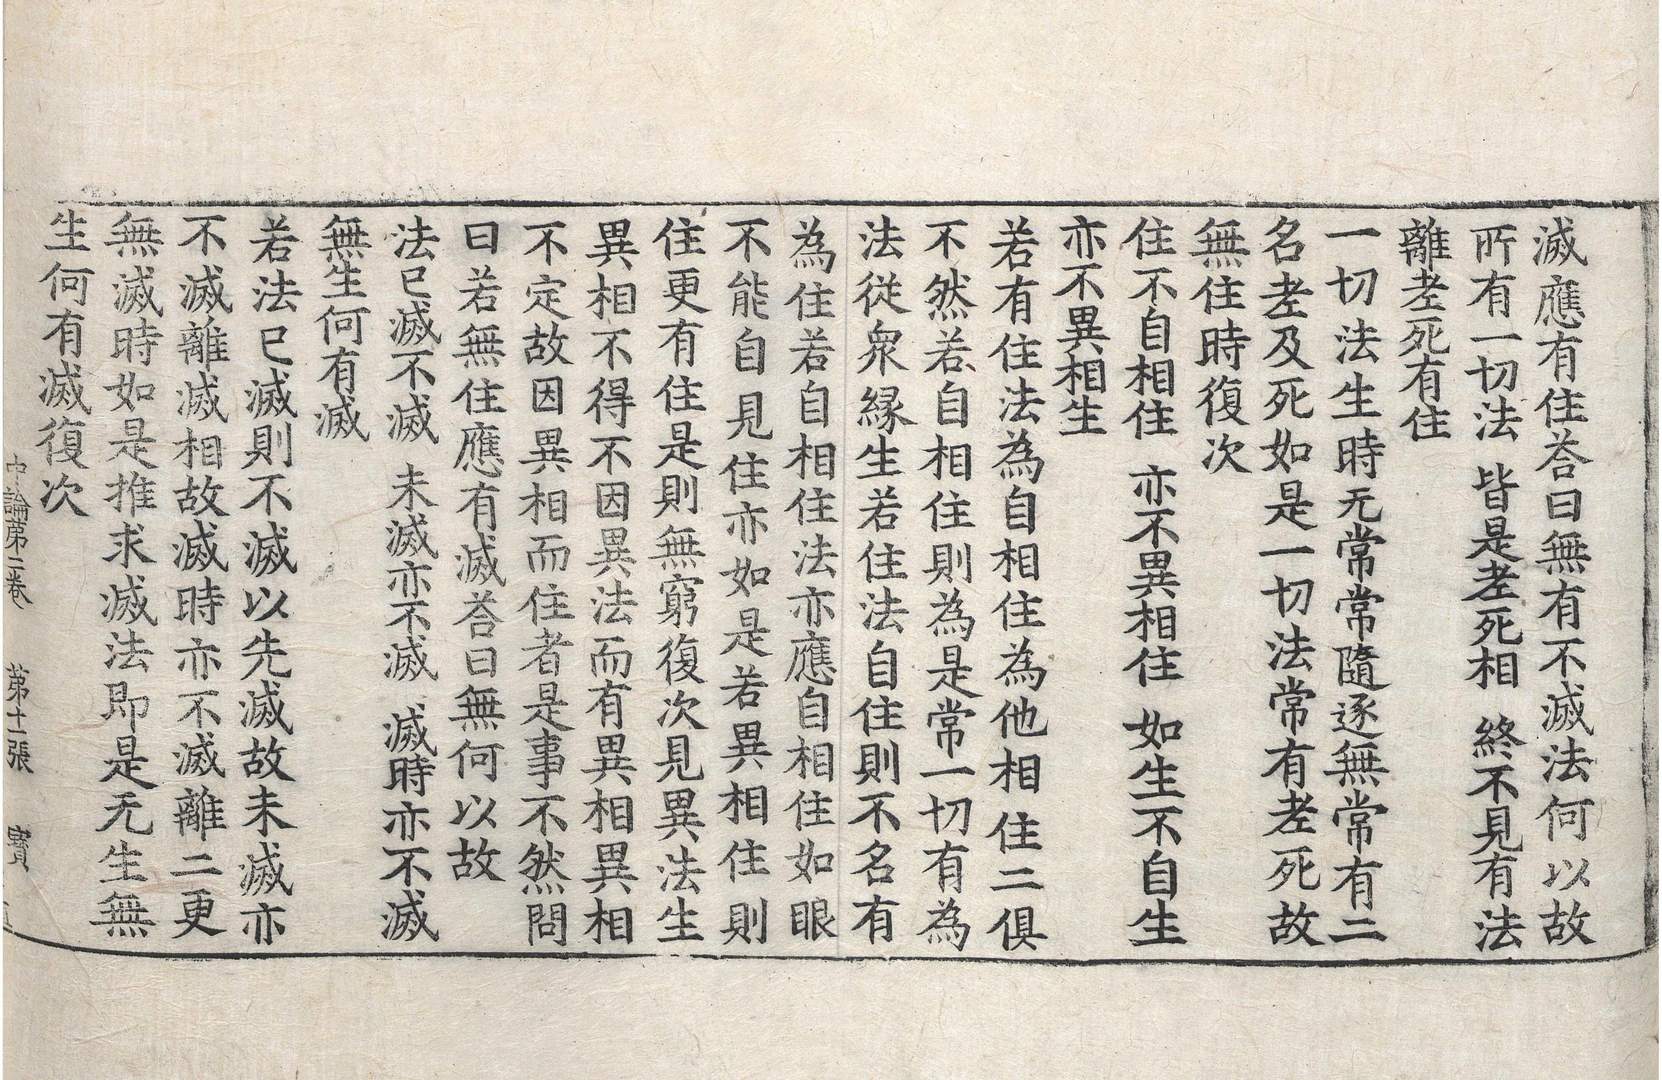 滅應有住荅曰無有不滅法何以故
所有一切法 皆是老死相 終不見有法
離老死有住
一切法生時无常常隨逐無常有二
名老及死如是一切法常有老死故
無住時復次
住不自相住 亦不異相住 如生不自生
亦不異相生
若有住法為自相住為他相住二俱
不然若自相住則為是常一切有為
法從衆緣生若住法自住則不名有
為住若自相住法亦應自相住如眼
不能自見住亦如是若異相住則
住更有住是則無窮復次見異法生
異相不得不因異法而有異相異相
不定故因異相而住者是事不然問
曰若無住應有滅荅曰無何以故
法已滅不滅 未滅亦不滅 滅時亦不滅
無生何有滅
若法已滅則不滅以先滅故未滅亦
不滅離滅相故滅時亦不滅離二更
無滅時如是推求滅法即是无生無
生何有滅復次
中論第二卷 第十一張 寶